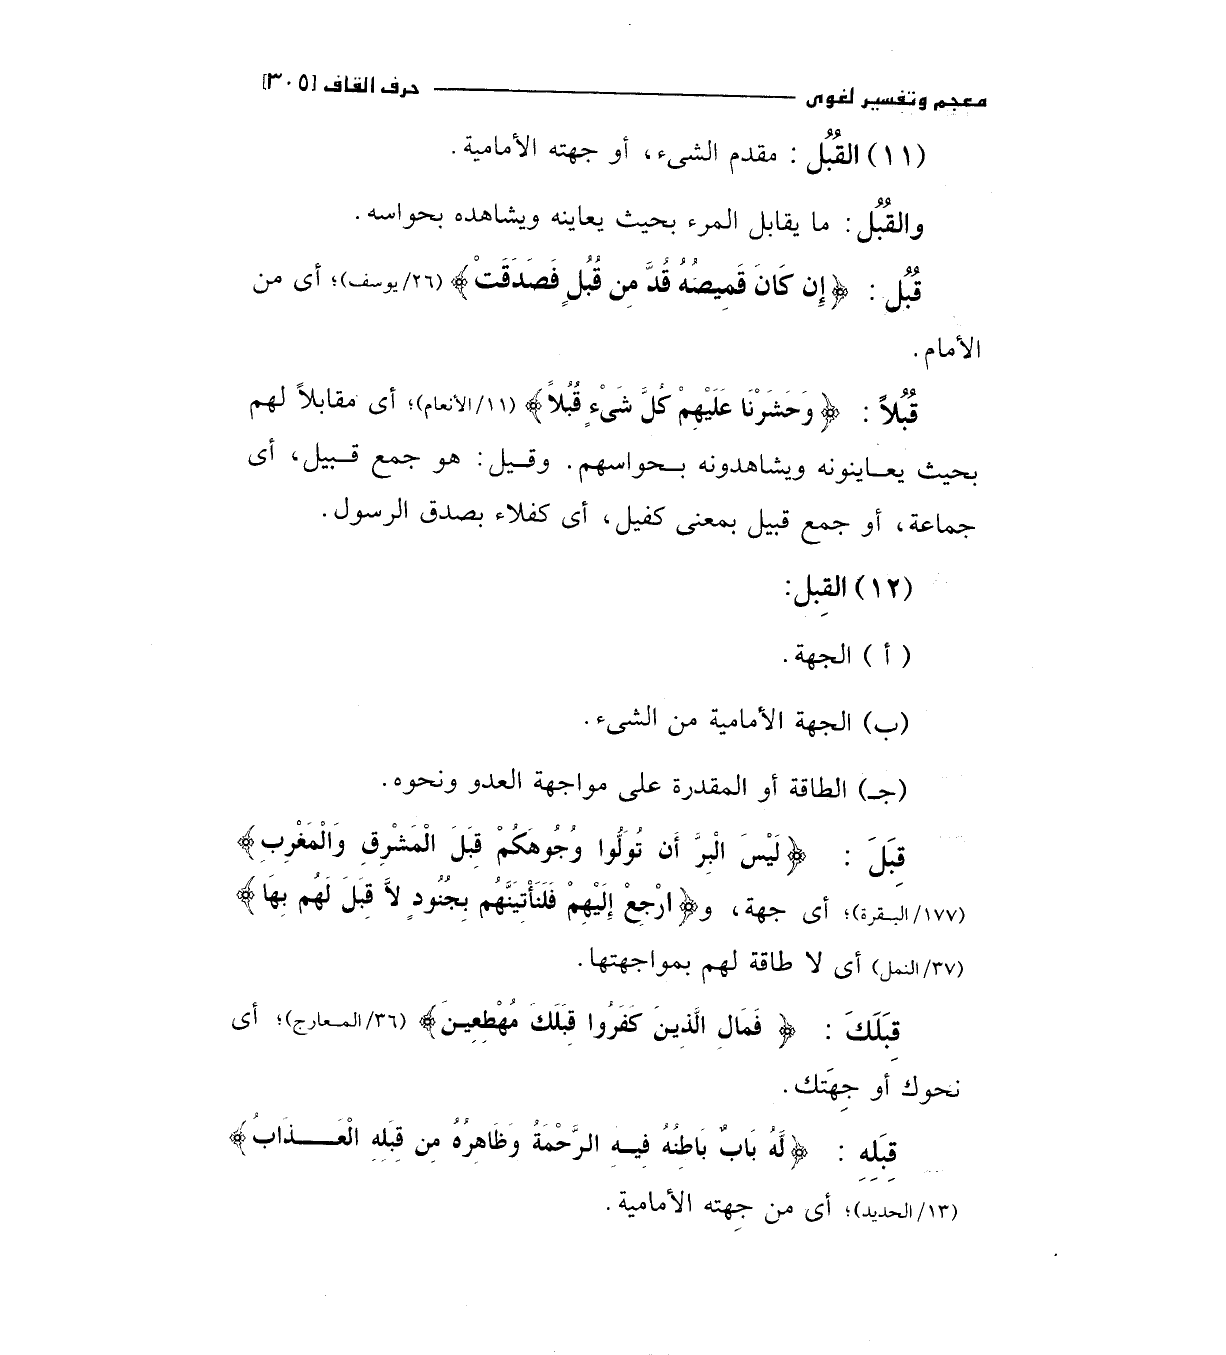 معجم وتفسير لغوى ــــــــ حرف القاف [٣٠٥]
(١١) القُبُل : مقدم الشىء، أو جهته الأمامية .
والقُبُل : ما يقابل المرء بحيث يعاينه ويشاهده بحواسه .
قُبُل : ﴿إِن كَانَ قَمِيصُهُ قُدَّ مِن قُبُلٍ فَصَدَقَتْ﴾ (٢٦/يوسف)؛ أى من
الأمام .
قُبُلاً : ﴿وَحَشَرْنَا عَلَيْهِمْ كُلَّ شَىْءٍ قُبُلاً﴾ (١١/الأنعام)؛ أى مقابلاً لهم
بحيث يعـاينونه ويشاهدونه بـحواسهم . وقـيل : هو جمع قـبيل، أى
جماعة، أو جمع قبيل بمعنى كفيل، أى كفلاء بصدق الرسول .
(١٢) القِبل :
( أ ) الجهة .
(ب) الجهة الأمامية من الشىء .
(جـ) الطاقة أو المقدرة على مواجهة العدو ونحوه .
قِبَلَ : ﴿لَيْسَ الْبِرَّ أَن تُوَلُّوا وُجُوهَكُمْ قِبَلَ الْمَشْرِقِ وَالْمَغْرِبِ﴾
(١٧٧/البـقرة)؛ أى جهة، و﴿ارْجِعْ إِلَيْهِمْ فَلَنَأْتِيَنَّهُم بِجُنُودٍ لاَّ قِبَلَ لَهُم بِهَا﴾
(٣٧/النمل) أى لا طاقة لهم بمواجهتها .
قِبَلَكَ : ﴿فَمَالِ الَّذِينَ كَفَرُوا قِبَلَكَ مُهْطِعِينَ﴾ (٣٦/المـعارج)؛ أى
نحوك أو جِهَتك .
قِبَلِهِ : ﴿لَّهُ بَابٌ بَاطِنُهُ فِيـهِ الرَّحْمَةُ وَظَاهِرُهُ مِن قِبَلِهِ الْعَـــذَابُ﴾
(١٣/الحديد)؛ أى من جِهته الأمامية .